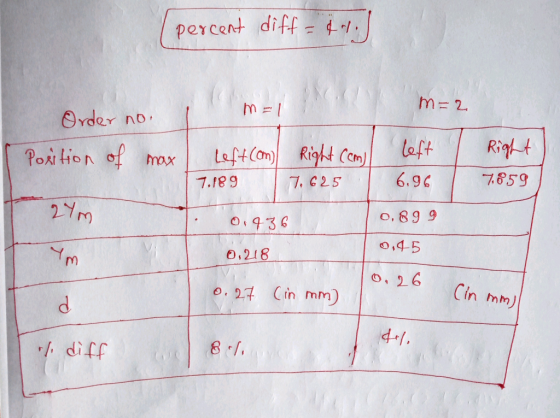 percent diff = 4 %.
Order no. m=1 m=2
Position of max Left (cm) Right (cm) Left Right
7.189 7.625 6.96 7.859
2Ym 0.436 0.899
Ym 0.218 0.45
d 0.27 (in mm) 0.26 (in mm)
% diff 8 % 4%